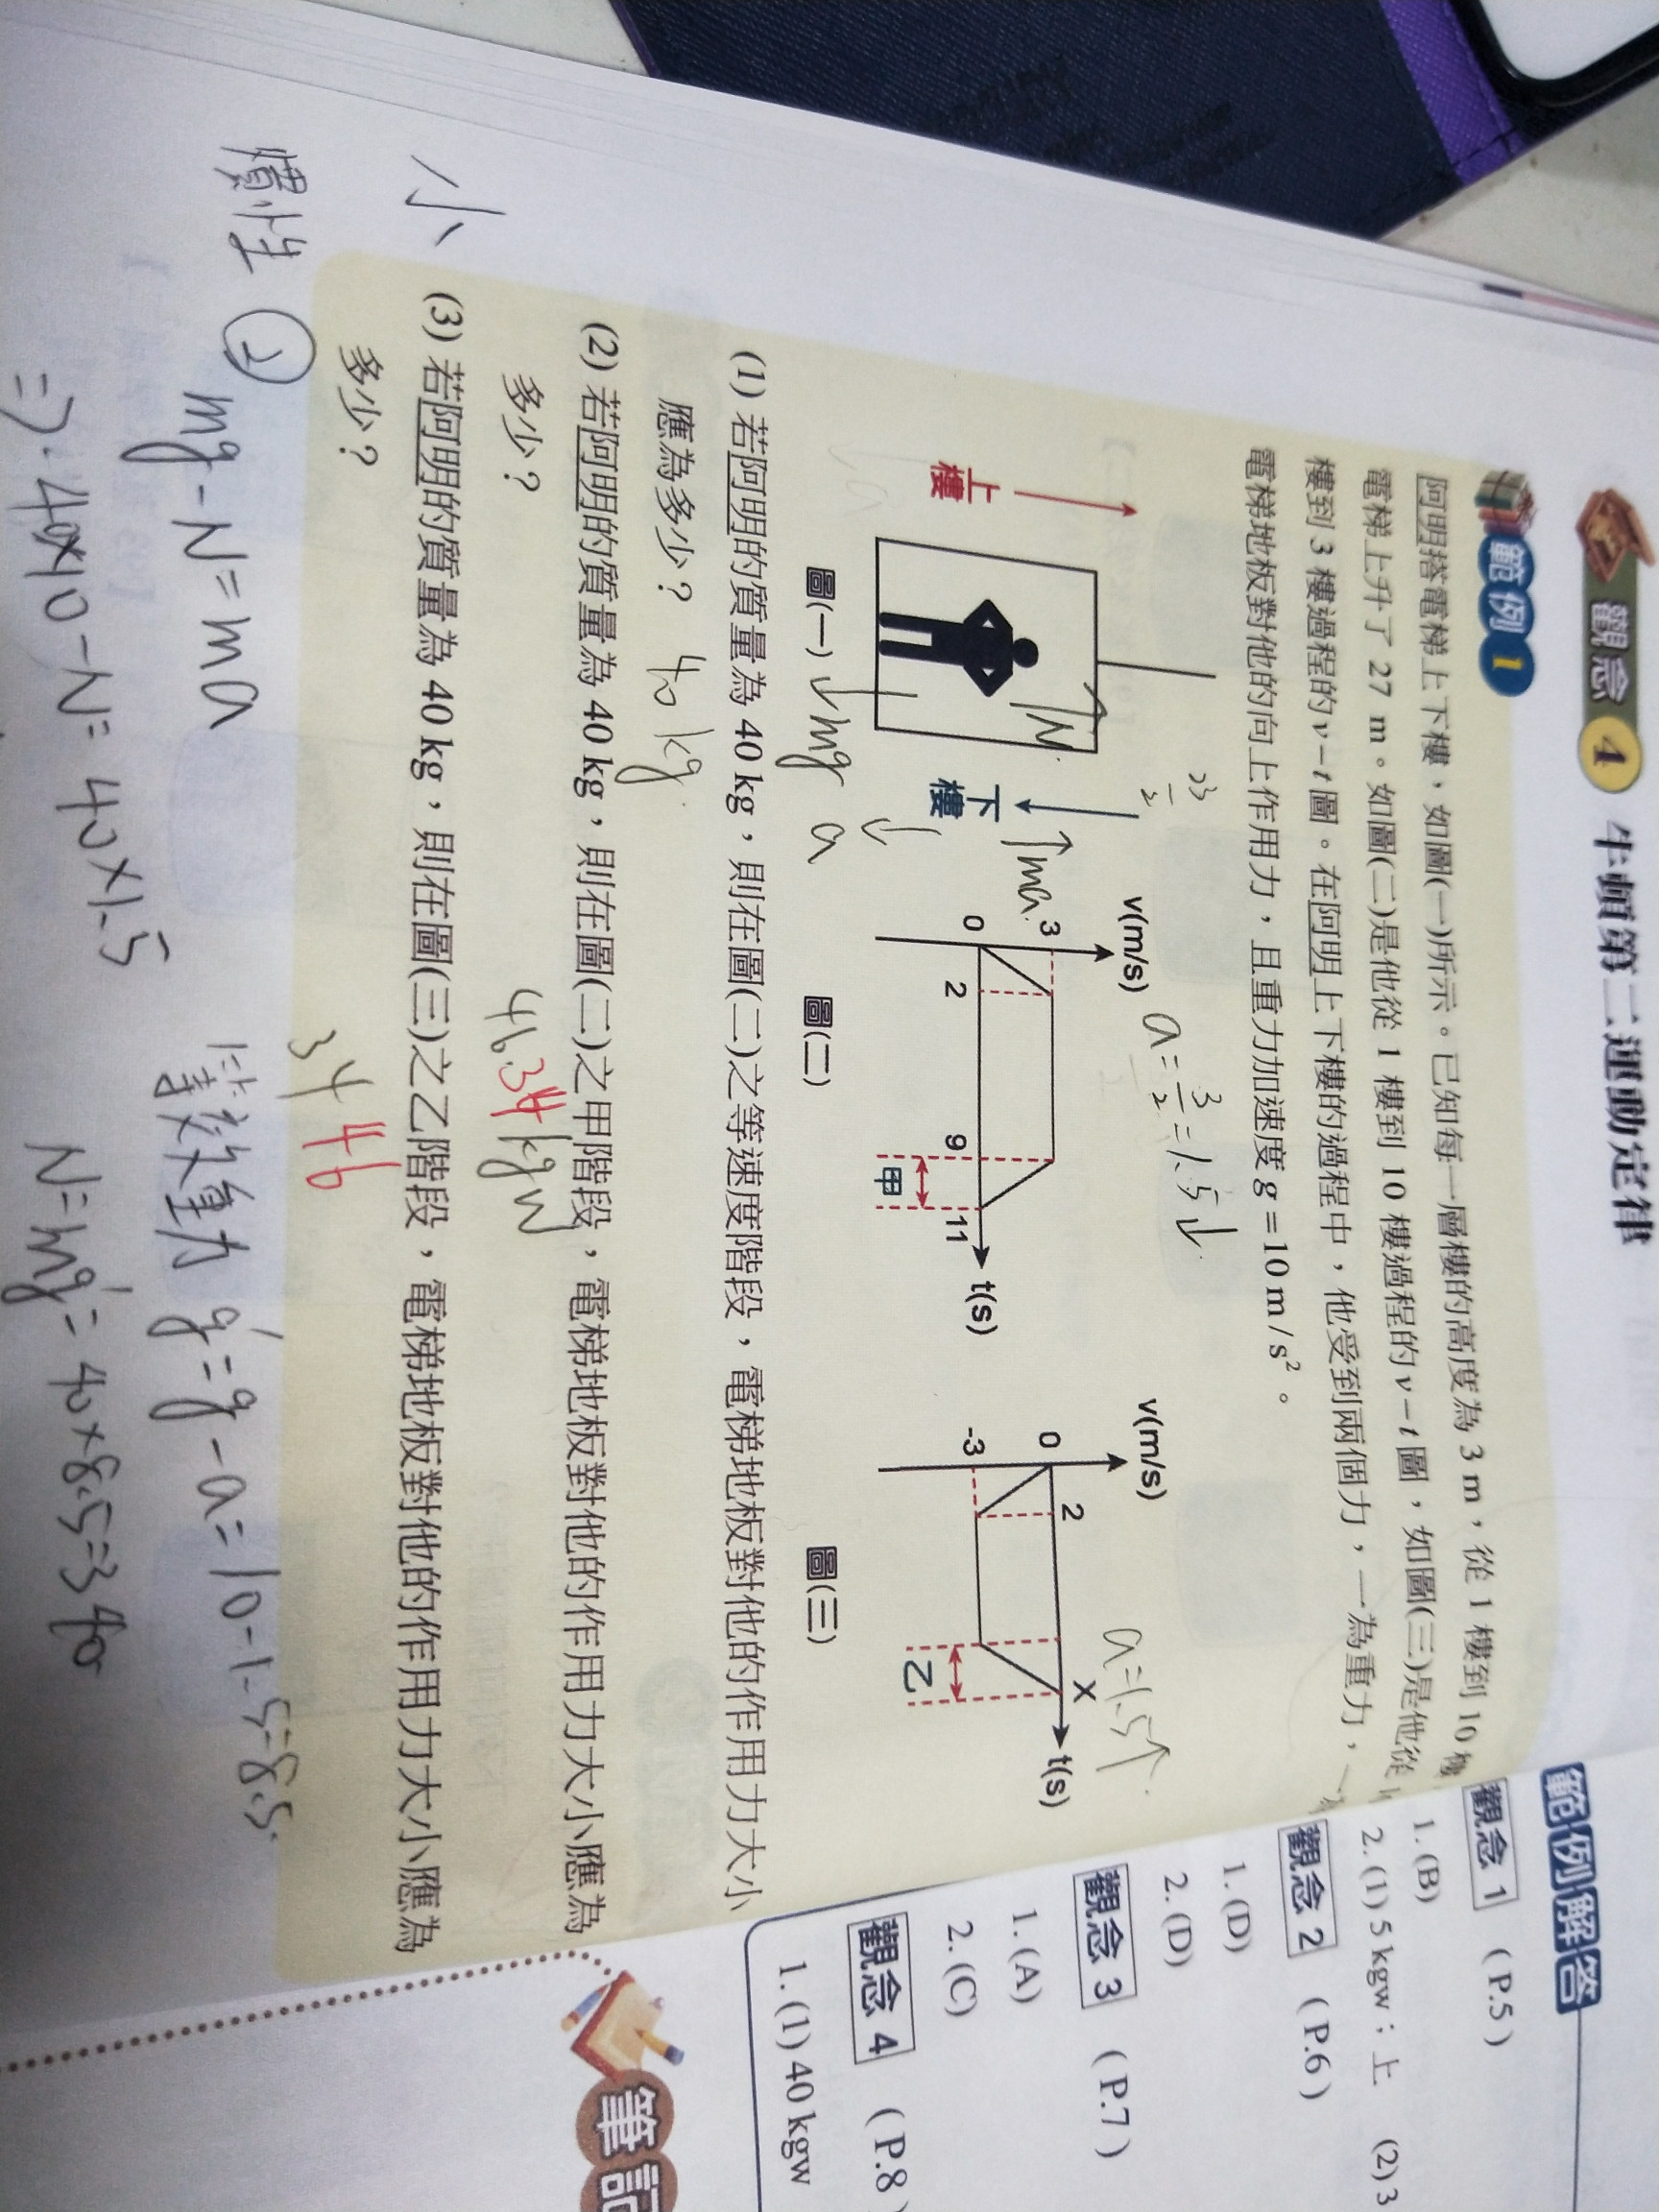 觀念 4 牛頓第二運動定律
範例 1
阿明搭電梯上下樓,如圖(一)所示。已知每一層樓的高度為 3 m,從 1 樓到 10 樓
電梯上升了 27 m。如圖(二)是他從 1 樓到 10 樓過程的 v-t 圖,如圖(三)是他從
樓到 3 樓過程的 v-t 圖。在阿明上下樓的過程中,他受到兩個力,一為重力,一
電梯地板對他的向上作用力,且重力加速度 g = 10 m / s²。
3/2
a = 3/2 = 1.5↓
a=1.5↑
上樓
N
下樓
↑ma
v(m/s)
3
0
2
9
11
t(s)
甲
v(m/s)
0
-3
2
X
t(s)
乙
圖(一)
↓mg
a
↓
圖(二)
圖(三)
(1) 若阿明的質量為 40 kg,則在圖(二)之等速度階段,電梯地板對他的作用力大小
應為多少?
40 kg
(2) 若阿明的質量為 40 kg,則在圖(二)之甲階段,電梯地板對他的作用力大小應為
多少?
46 34 kgw
(3) 若阿明的質量為 40 kg,則在圖(三)之乙階段,電梯地板對他的作用力大小應為
多少?
34 46
小
慣性
②
mg - N = ma
=> 40×10 - N = 40×1.5
等效重力 g' = g - a = 10 - 1.5 = 8.5
N = mg' = 40 × 8.5 = 340
範例解答
觀念 1 ( P.5 )
1. (B)
2. (1) 5 kgw;上 (2) 3
觀念 2 ( P.6 )
1. (D)
2. (D)
觀念 3 ( P.7 )
1. (A)
2. (C)
觀念 4 ( P.8 )
1. (1) 40 kgw
筆記